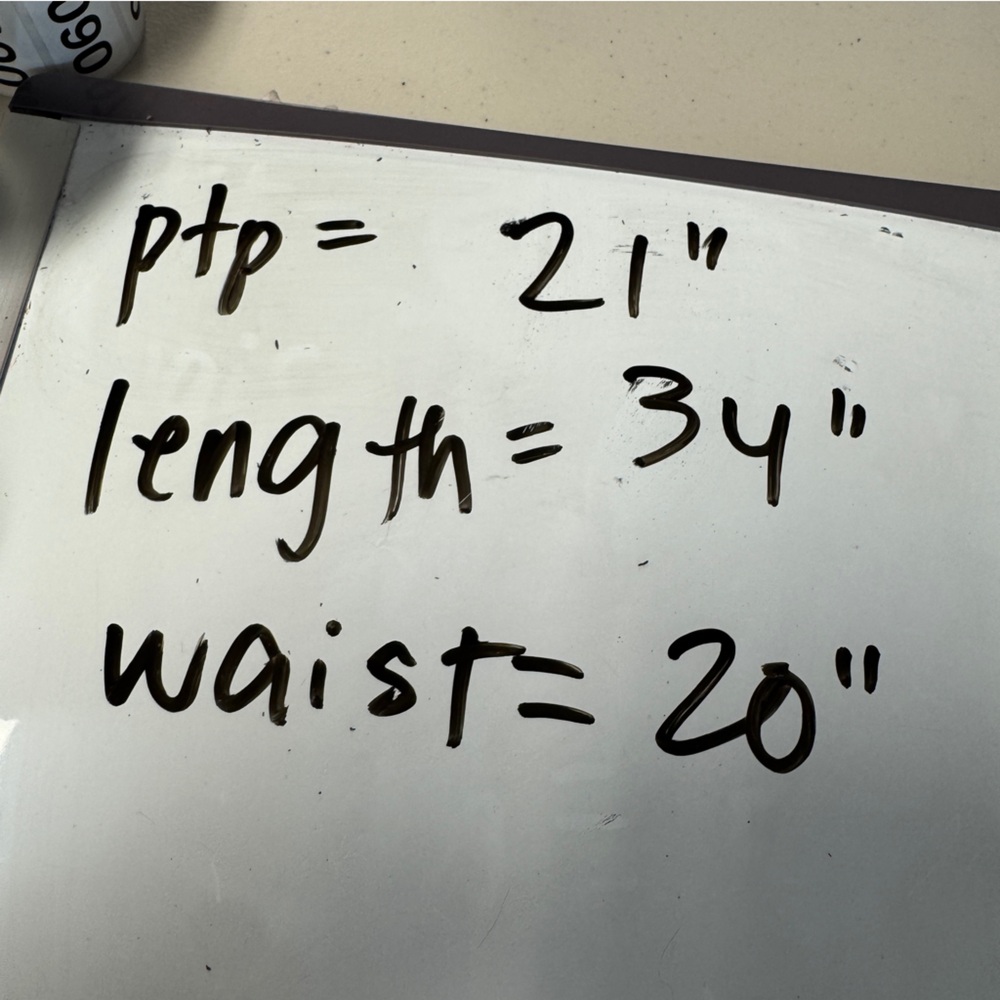 090
ptp = 21"
length = 34"
waist = 20"